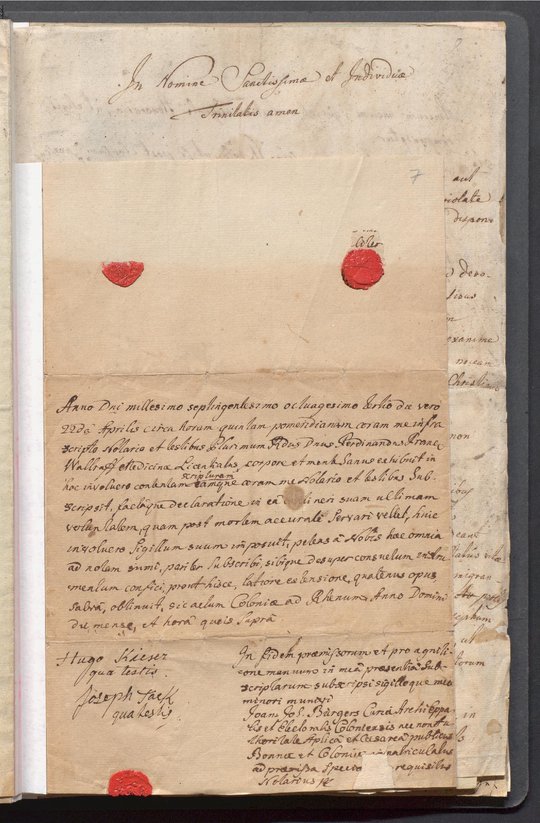 In Nomine Sanctissimæ et Individuæ
Trinitatis amen
7
aut
violate
dispon
Anno Dni millesimo septingentesimo octuagesimo tertio die vero
22da Aprilis circa horam quintam pomeridianam coram me infra
scripto Notario et testibus Plurimum Rdus Dnus Ferdinandus Franc
Wallraff Medicinæ Licentiatus, corpore et mente Sanus exhibuit in
hoc involucro contentam scripturam eamque coram me Notario et testibus Sub-
scripsit, factaque declaratione in ea contineri suam ultimam
voluntatem, quam post mortem accurate servari vellet, huic
involucro Sigillum suum imposuit, petens a Nobis hæc omnia
ad notam sumi, pariter subscribi, sibique desuper consuetum instru
mentum confici, prout hisce, latiore extensione, quatenus opus
salva, obtinuit, sic actum Coloniæ ad Rhenum Anno Domini
die mense, et hora queis supra
Hugo
qua testis
Joseph
qua testis
In fidem præmissorum et pro agniti-
one manuum in mea præsentia Sub-
scriptarum subscripsi sigilloque meo
minori munivi
Joan: Jos: Bürgers Curiæ Archi Eppa
lis et Electoralis Coloniensis nec non Au
thoritate Aplica et Cæsarea publicus
Bonnæ et Coloniæ immatriculatus
ad præmissa requisitus
Notarius